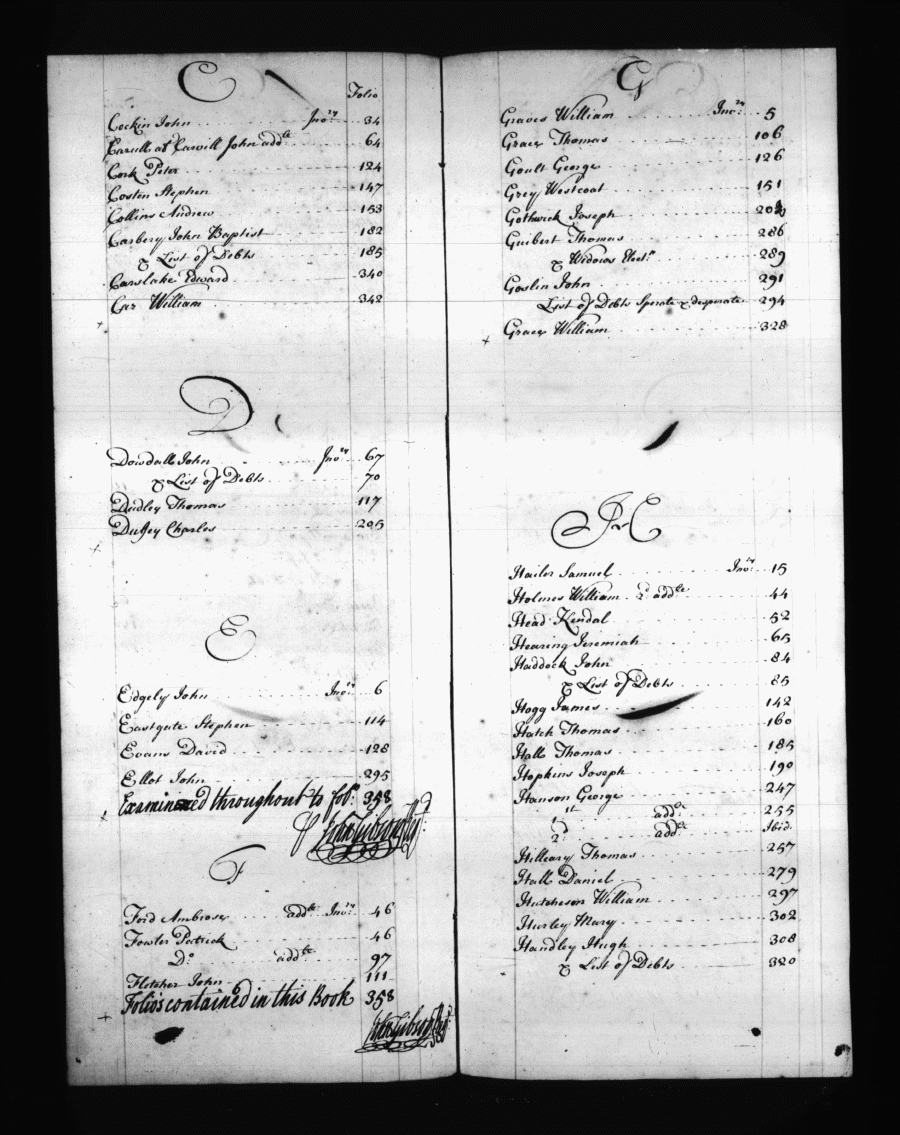 C
Folio
Cockin John Invry 34
Carvill at Cawill John addl 64
Cork Peter 124
Costen Stephen 147
Collins Andrew 153
Carbery John Baptist 182
& List of Debts 185
Carslake Edward 340
Car William 342
D
Dowdall John Invry 67
& List of Debts 70
Dudley Thomas 117
Charles 205
E
Edgely John Invry 6
Eastgate Stephen 114
Evans David 128
Ellot John 295
Examined throughout to fol: 358
F
Ford Ambrose addl Invry 46
Fowler Patrick 46
Do addl 97
Fletcher John 111
Folio's contained in this Book 358
G
Graves William Invry 5
Gracey Thomas 106
Goult George 126
Grey Westcoat 151
Gothwick Joseph
Guibert Thomas 286
& Widows Electn 289
Goslin John 291
List of Debts Sperate & desperate 294
Gracey William 328
H
Hailes Samuel Invry 15
Holmes William 2d addl 44
Head Kendal 52
Hearing Jeremiah 65
Haddock John 84
& List of Debts 85
Hogg James 142
Hatch Thomas 160
Hall Thomas 185
Hopkins Joseph 190
Hanson George 247
1st addl 255
2d addl Ibid.
Hilleary Thomas 257
Hall Daniel 279
Hutcheson William 297
Hurley Mary 302
Handley Hugh 308
& List of Debts 320